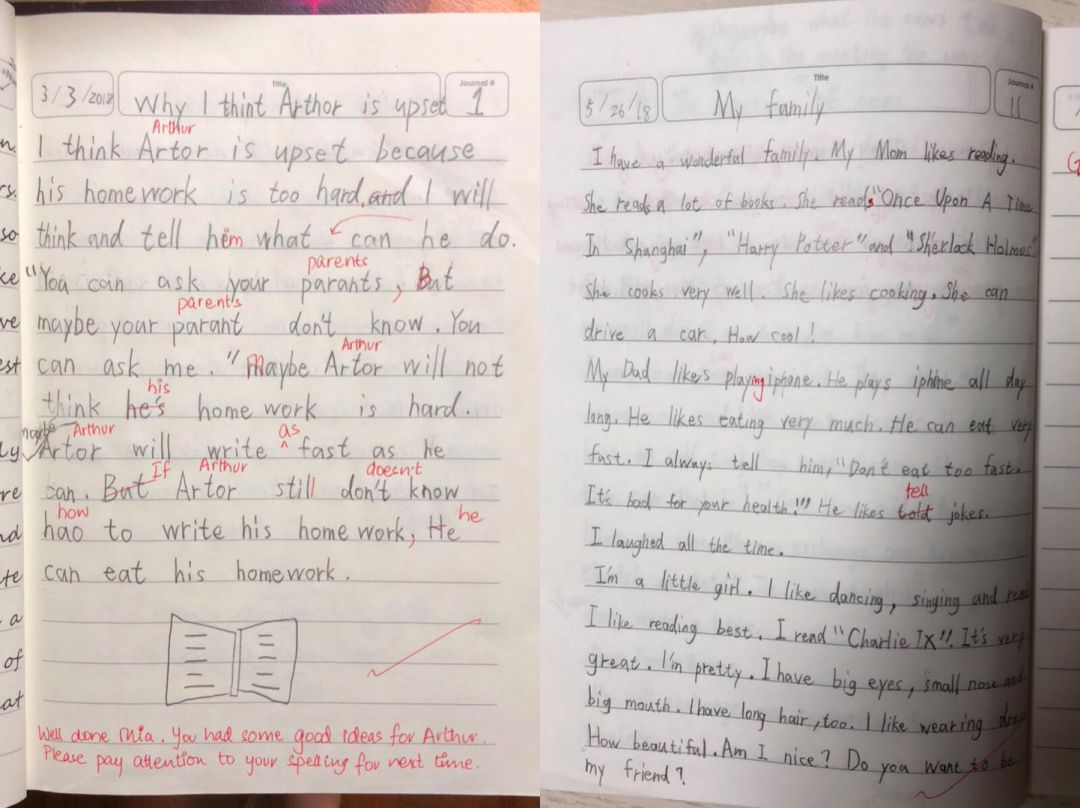 3/3/2018
Title
Why I thint Arthor is upset
Journal #
1
Arthur
I think Artor is upset because
his homework is too hard, and I will
think and tell him what can he do.
parents
"You can ask your parants, But
parents
maybe your parant don't know. You
Arthur
can ask me." Maybe Artor will not
his
think he's home work is hard.
maybe Arthur as
Artor will write ^ fast as he
If Arthur doesn't
can. But Artor still don't know
how he
hao to write his home work, He
can eat his homework.
Well done Mia. You had some good ideas for Arthur.
Please pay attention to your spelling for next time.
n.
rs.
so
ke
ve
est
ly
re
nd
te
a
of
at
5/26/18
Title
My family
Journal #
11
I have a wonderful family. My Mom likes reading.
She reads a lot of books. She reads "Once Upon A Time
In Shanghai", "Harry Potter" and "Sherlock Holmes"
She cooks very well. She likes cooking. She can
drive a car. How cool!
My Dad likes playing iphone. He plays iphone all day
long. He likes eating very much. He can eat very
fast. I always tell him, "Don't eat too fast.
tell
It's bad for your health!" He likes told jokes.
I laughed all the time.
I'm a little girl. I like dancing, singing and read
I like reading best. I read "Charlie IX". It's very
great. I'm pretty. I have big eyes, small nose and
big mouth. I have long hair, too. I like wearing dres
How beautiful. Am I nice? Do you want to be
my friend?